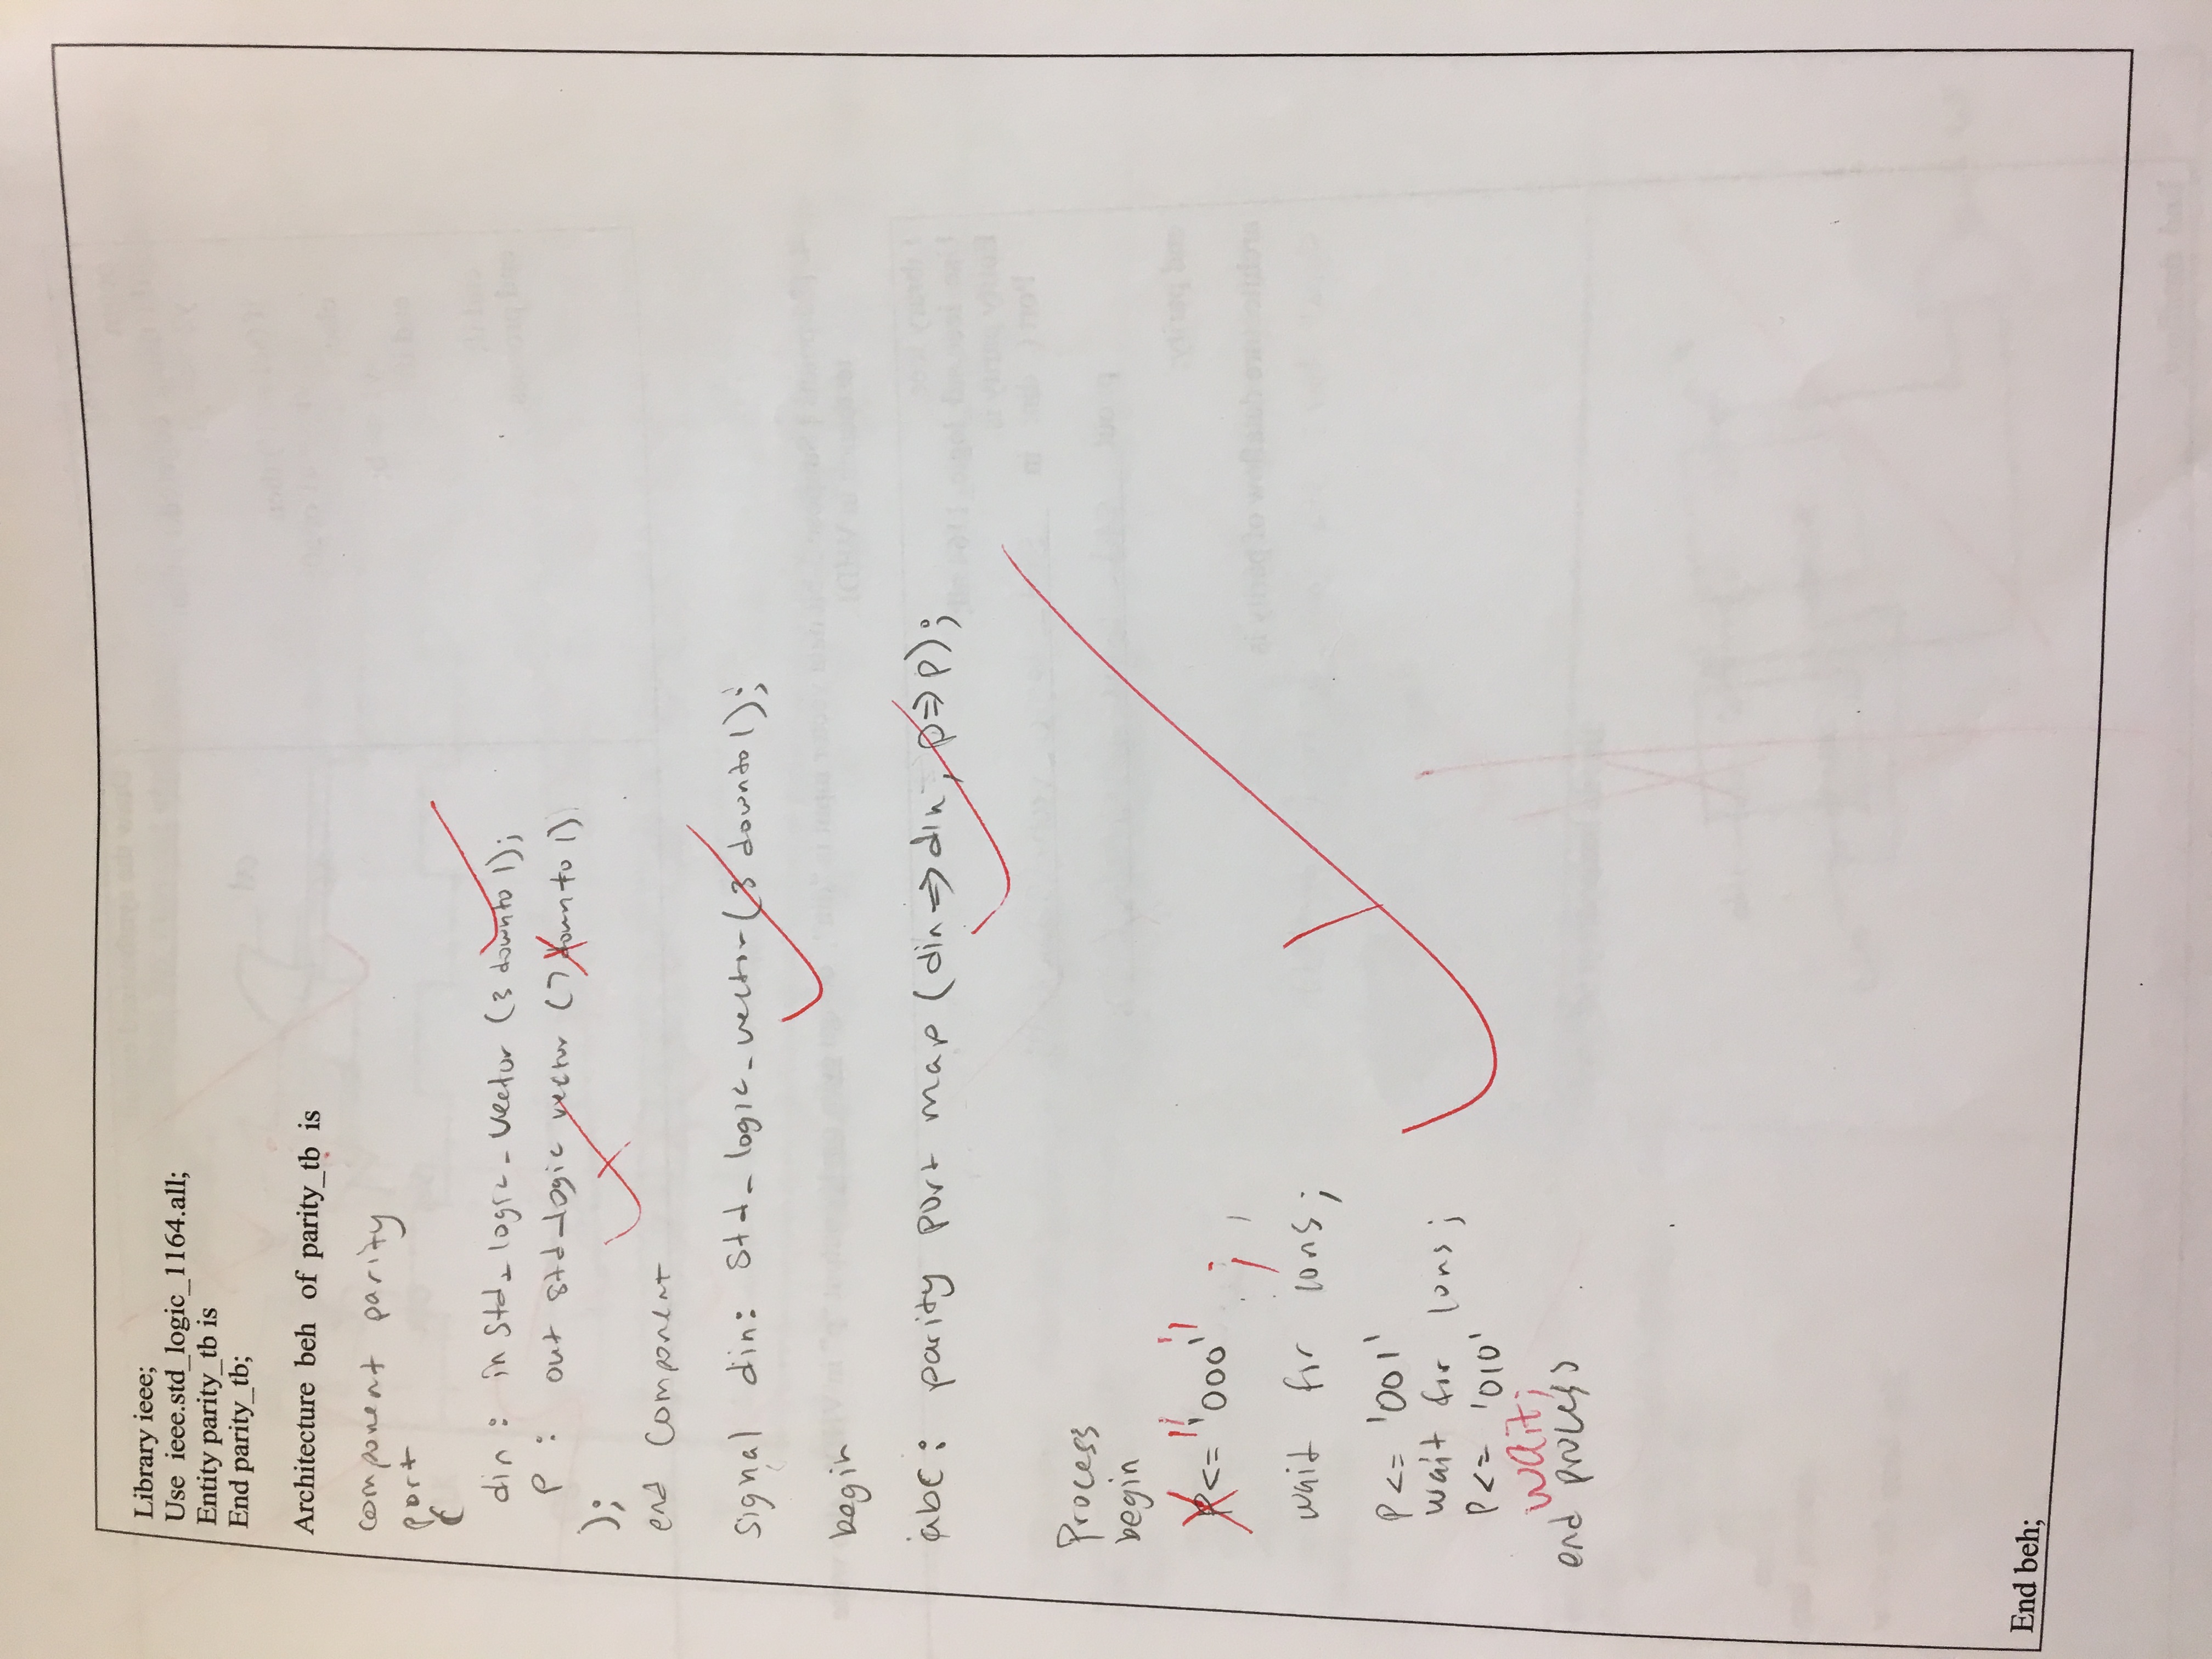 Library ieee;
Use ieee.std_logic_1164.all;
Entity parity_tb is
End parity_tb;
Architecture beh of parity_tb is
component parity
port
(
din : in std_logic_vector (3 downto 1);
p : out std_logic vector (7 downto 1)
);
end component
signal din: std_logic_vector (3 downto 1);
begin
abc: parity port map (din => din, p => p);
Process
begin
P <= "'000'" ;
wait for 10ns;
P <= '001'
wait for 10ns;
P <= '010'
wait;
end process
End beh;